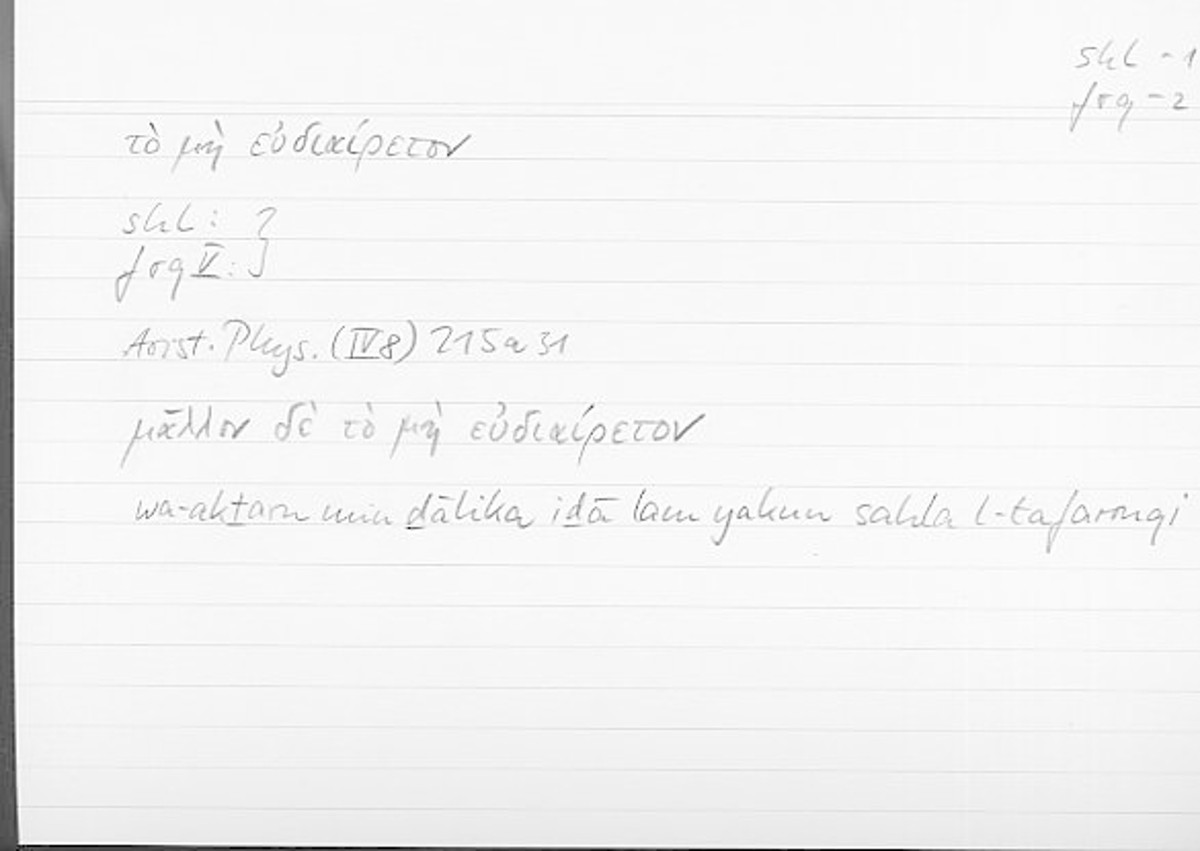 shl - 1
frq - 2
τὸ μὴ εὐδιαίρετον
shl : }
frq V : }
Arist. Phys. (IV 8) 215a31
μᾶλλον δὲ τὸ μὴ εὐδιαίρετον
wa-akṯaru min ḏālika iḏā lam yakun sahla l-tafarruqi